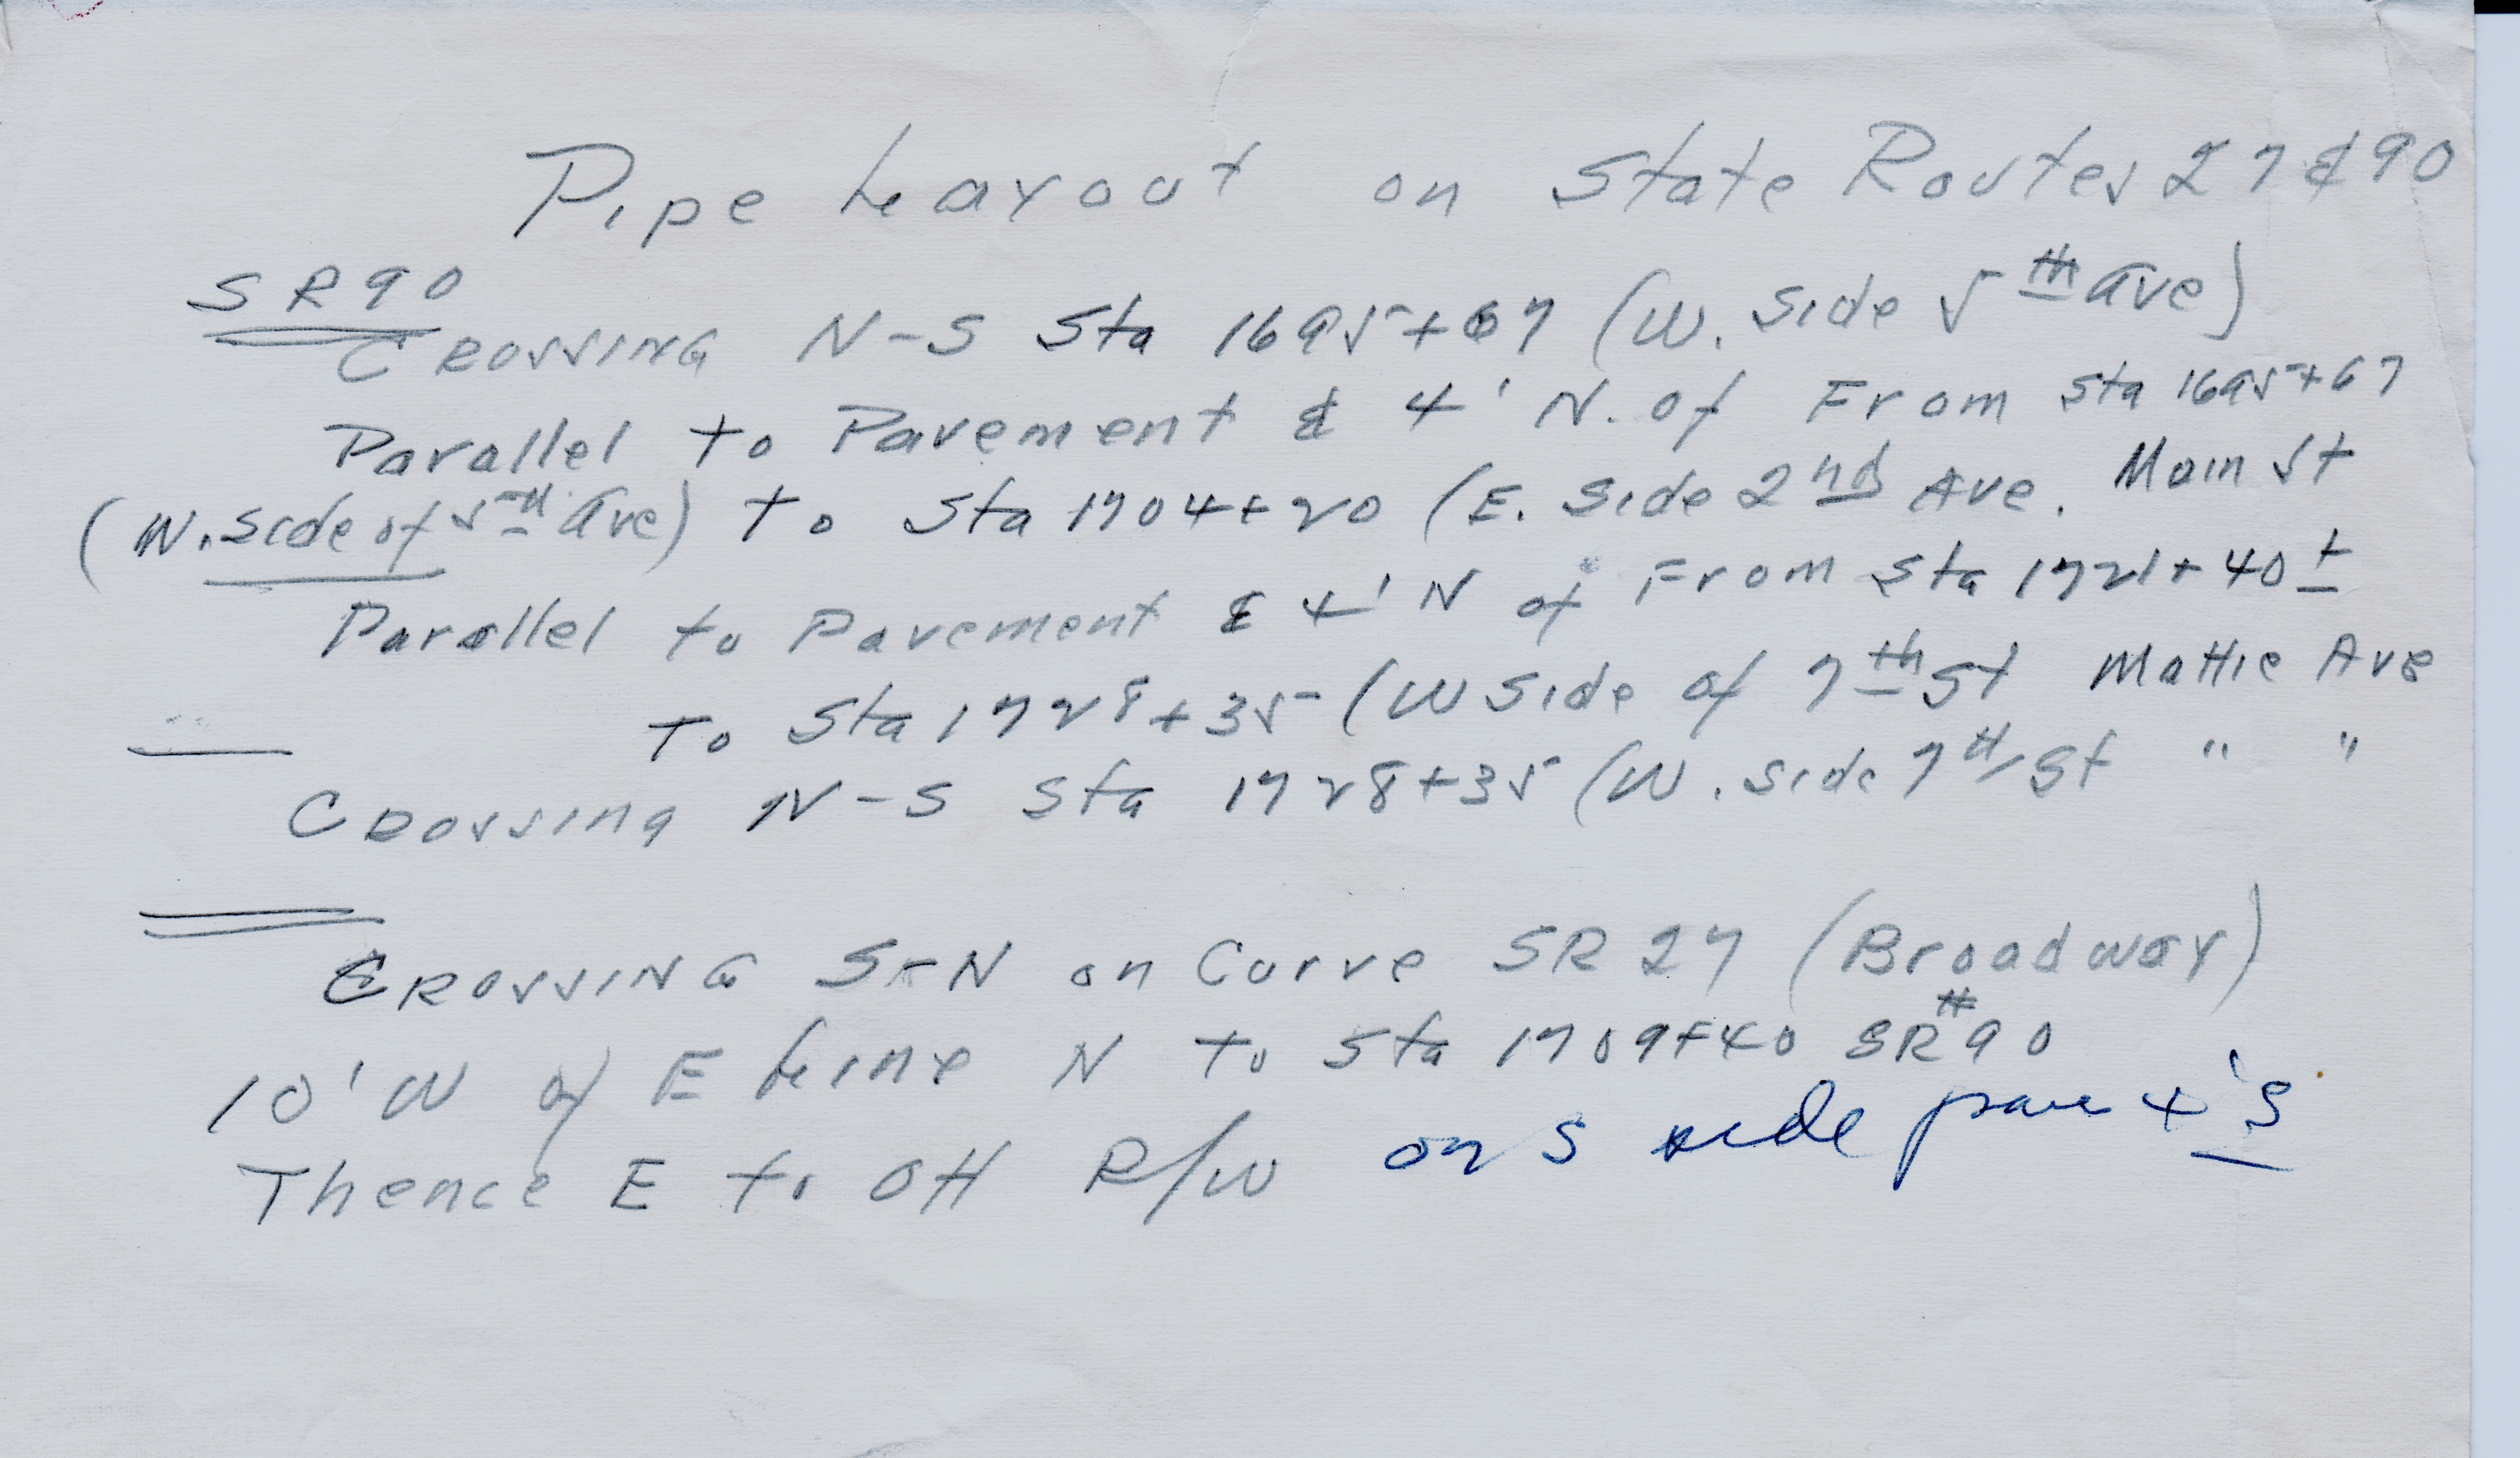 Pipe Layout on State Routes 27 & 90
SR 90
CROSSING N-S Sta 1695+67 (W. Side 5th Ave)
Parallel to Pavement & 4' N. of From Sta 1695+67
(W. Side of 5th Ave) To Sta 1704+20 (E. Side 2nd Ave. Main St
Parallel to Pavement & 4' N of From Sta 1721+40±
To Sta 1728+35 (W Side of 7th St Mattie Ave
Crossing N-S Sta 1728+35 (W. Side 7th St " "
CROSSING S-N on Curve SR 27 (Broadway)
10' W of E Line N to Sta 1709+40 SR #90
Thence E to OH R/W on S side pave 4' S